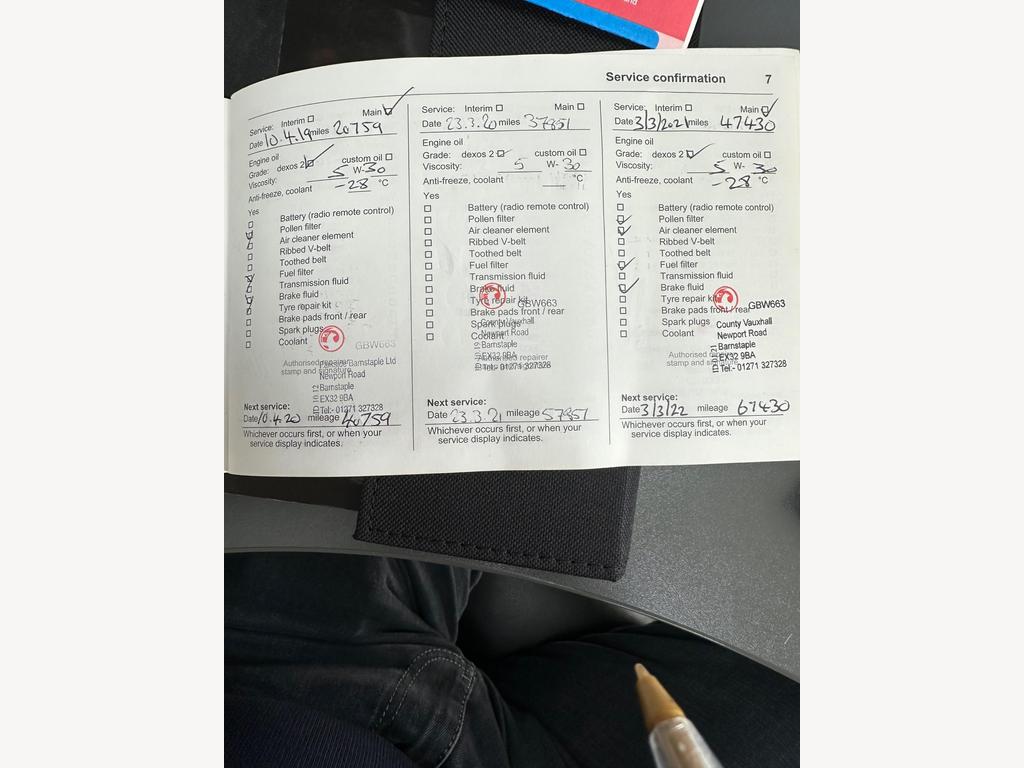 Service confirmation 7
Service: Interim Main
Date 10.4.19 miles 20759
Engine oil
Grade: dexos 2 custom oil
Viscosity: 5 W- 30
Anti-freeze, coolant -28 °C
Yes
Battery (radio remote control)
Pollen filter
Air cleaner element
Ribbed V-belt
Toothed belt
Fuel filter
Transmission fluid
Brake fluid
Tyre repair kit
Brake pads front / rear
Spark plugs
Coolant
GBW663
Authorised repairer
stamp and signature
Barnstaple Ltd
Newport Road
Barnstaple
EX32 9BA
Tel:- 01271 327328
Next service:
Date 10.4.20 mileage 40759
Whichever occurs first, or when your
service display indicates.
Service: Interim Main
Date 23.3.20 miles 37851
Engine oil
Grade: dexos 2 custom oil
Viscosity: 5 W- 30
Anti-freeze, coolant °C
Yes
Battery (radio remote control)
Pollen filter
Air cleaner element
Ribbed V-belt
Toothed belt
Fuel filter
Transmission fluid
Brake fluid
Tyre repair kit
Brake pads front / rear
Spark plugs
Coolant
GBW663
County Vauxhall
Newport Road
Barnstaple
EX32 9BA
Tel:- 01271 327328
Authorised repairer
stamp and signature
Next service:
Date 23.3.21 mileage 57851
Whichever occurs first, or when your
service display indicates.
Service: Interim Main
Date 3/3/2021 miles 47430
Engine oil
Grade: dexos 2 custom oil
Viscosity: 5 W- 30
Anti-freeze, coolant -28 °C
Yes
Battery (radio remote control)
Pollen filter
Air cleaner element
Ribbed V-belt
Toothed belt
Fuel filter
Transmission fluid
Brake fluid
Tyre repair kit
Brake pads front / rear
Spark plugs
Coolant
GBW663
County Vauxhall
Newport Road
Barnstaple
EX32 9BA
Tel:- 01271 327328
Authorised repairer
stamp and signature
Next service:
Date 3/3/22 mileage 67430
Whichever occurs first, or when your
service display indicates.